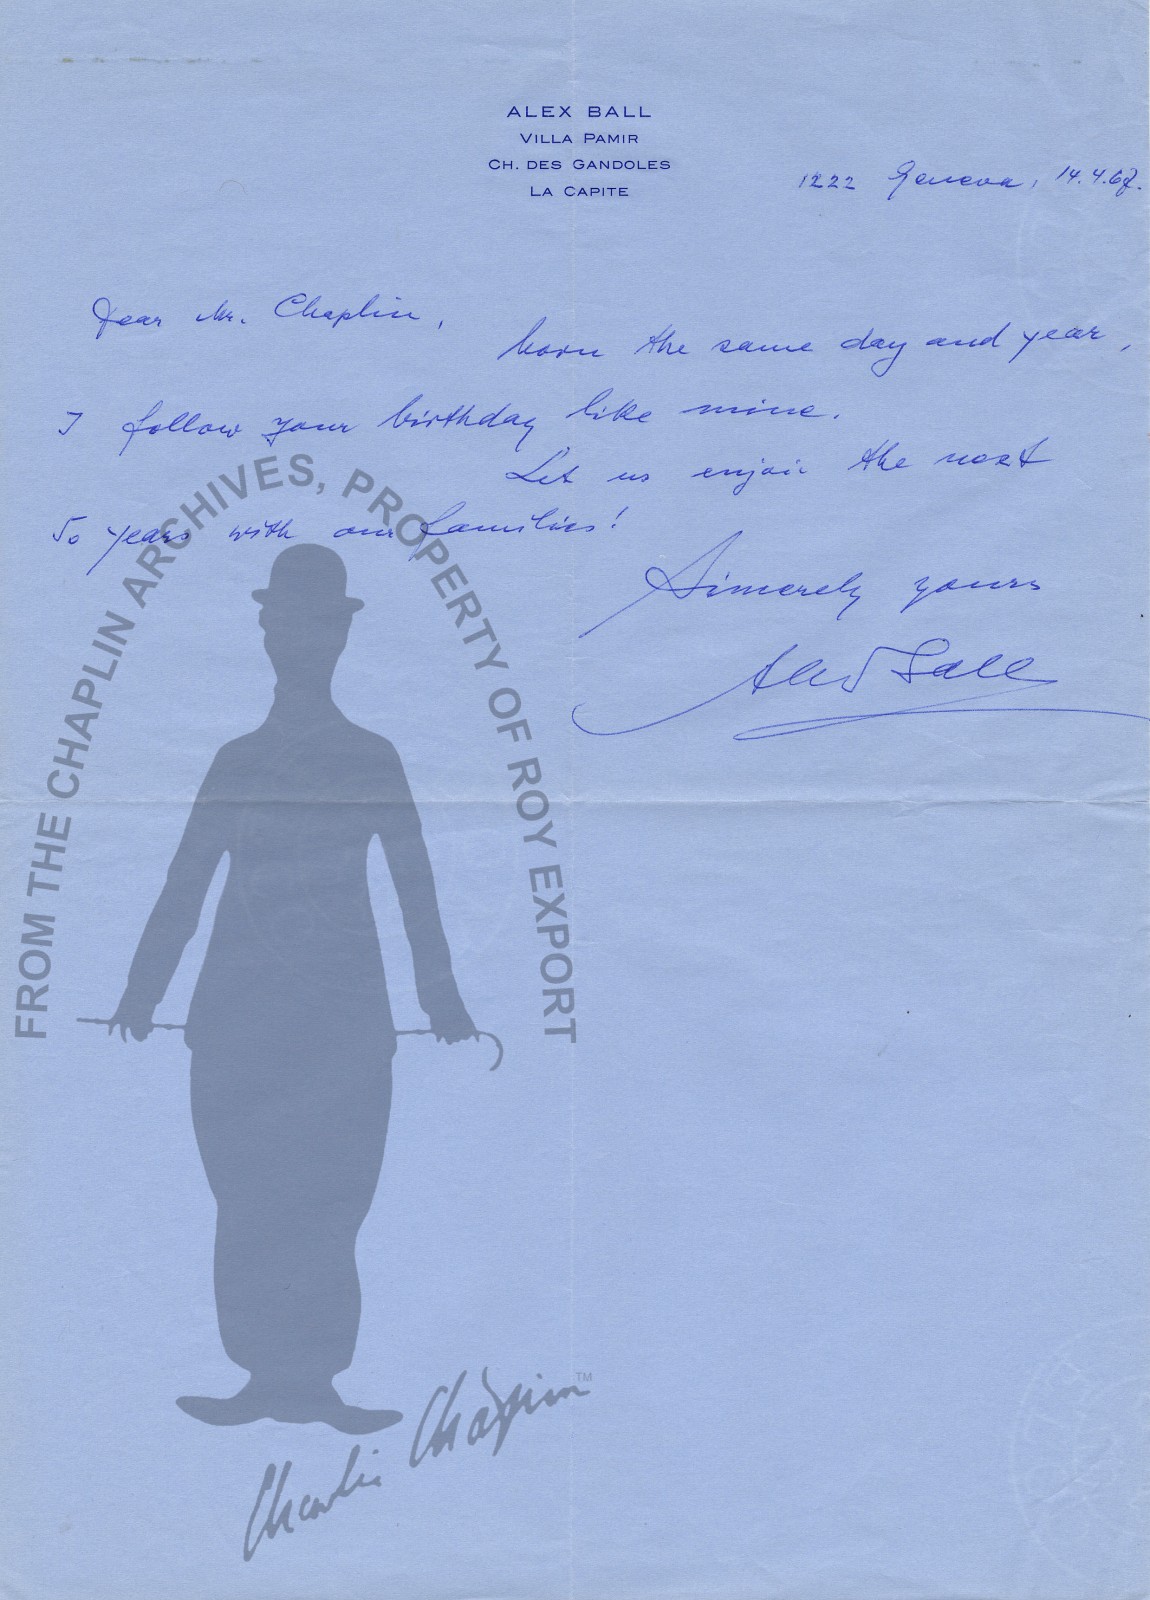 ALEX BALL
VILLA PAMIR
CH. DES GANDOLES
LA CAPITE
1222 Geneva, 14.4.67.
Dear Mr. Chaplin,
born the same day and year,
I follow your birthday like mine.
Let us enjoi the next
50 years with our families!
Simerely yours
Alex Ball
FROM THE CHAPLIN ARCHIVES, PROPERTY OF ROY EXPORT
Charlie Chaplin TM